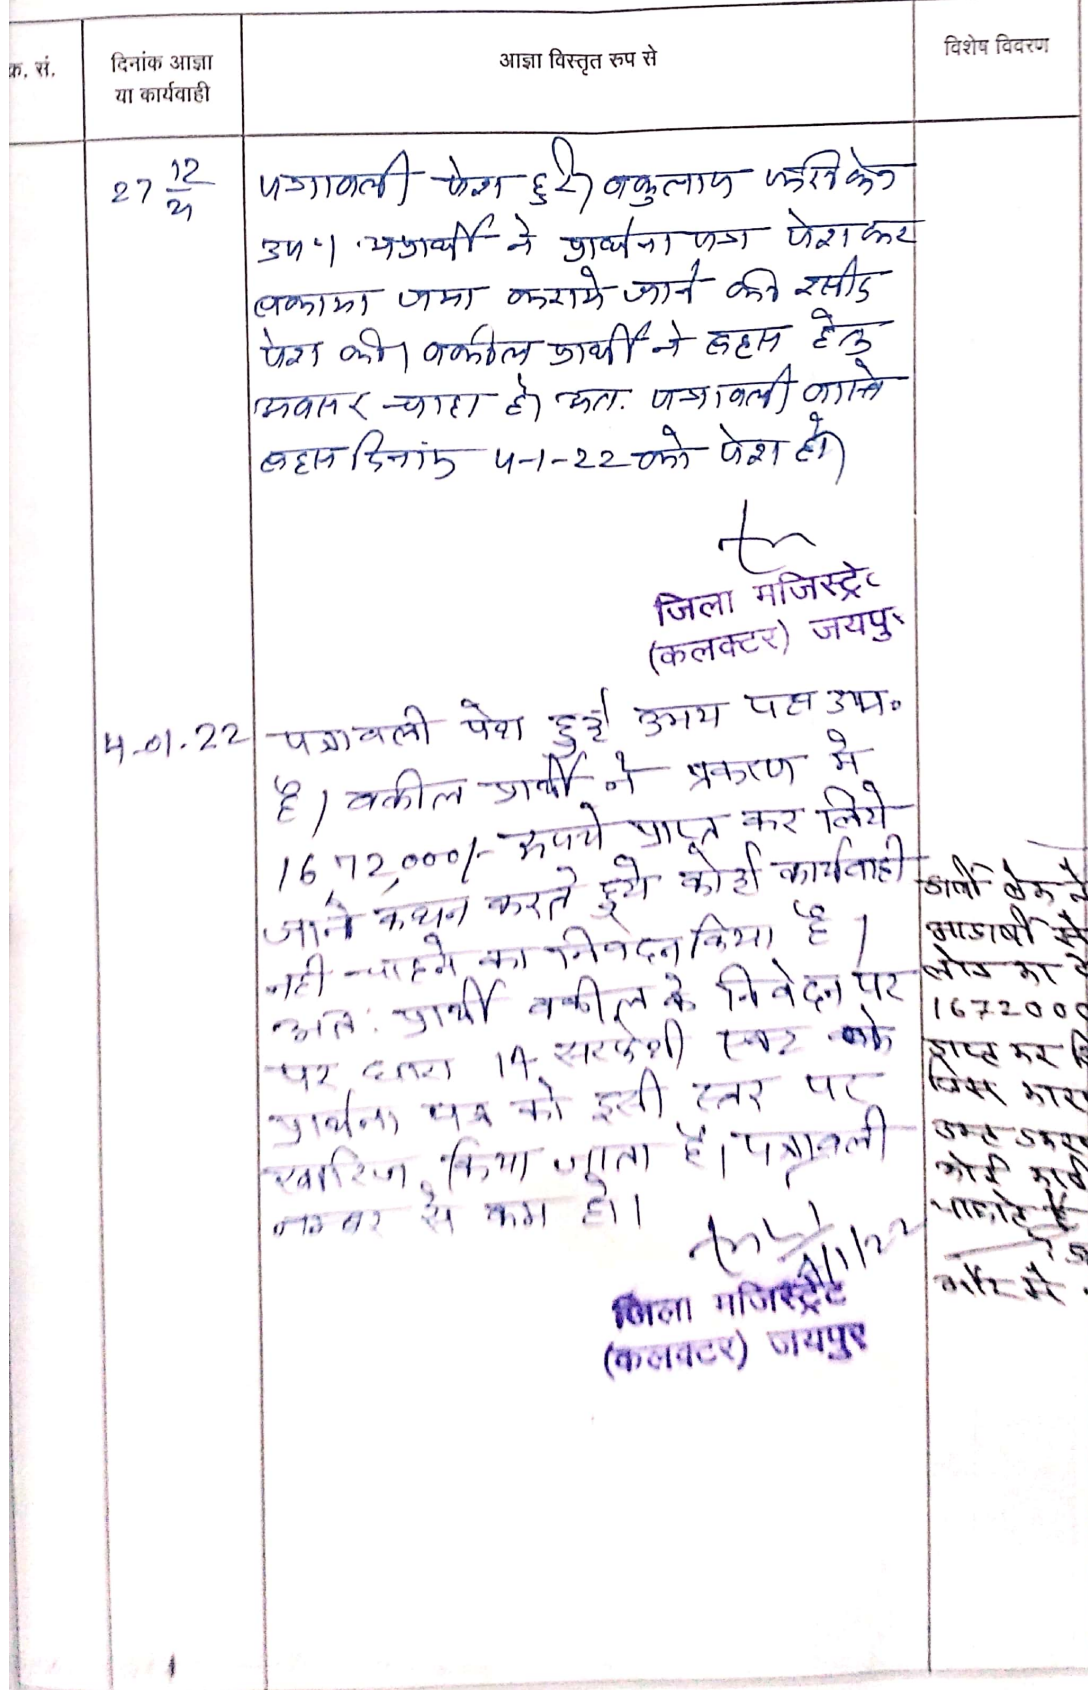 क्र. सं.
दिनांक आज्ञा
या कार्यवाही
आज्ञा विस्तृत रुप से
विशेष विवरण
27 12/21
पत्रावली पेश हुई। वकुलाय फरिकेन
उप। अप्रार्थी ने प्रार्थना पत्र पेश कर
बकाया जमा कराये जाने की रसीद
पेश की। वकील प्रार्थी ने बहस हेतु
अवसर चाहा है। अत. पत्रावली वास्ते
बहस दिनांक 4-1-22 को पेश हो।
जिला मजिस्ट्रेट
(कलक्टर) जयपुर
4.01.22
पत्रावली पेश हुई उभय पक्ष उप०
है। वकील प्रार्थी ने प्रकरण मे
16,72,000/- रूपये प्राप्त कर लिये
जाने कथन करते हुये कोई कार्यवाही
नही चाहने का निवेदन किया है।
अत: प्रार्थी वकील के निवेदन पर
पर धारा 14 सरफेसी एक्ट के
प्रार्थना पत्र को इसी स्तर पर
खारिज किया जाता है। पत्रावली
नम्बर से कम हो।
4/1/22
जिला मजिस्ट्रेट
(कलक्टर) जयपुर
प्रार्थी बैंक ने
अप्रार्थी से
लोन का
1672000
प्राप्त कर
जिस कारण
उक्त प्रकरण
कोई कार्य
चाहते है
और मै